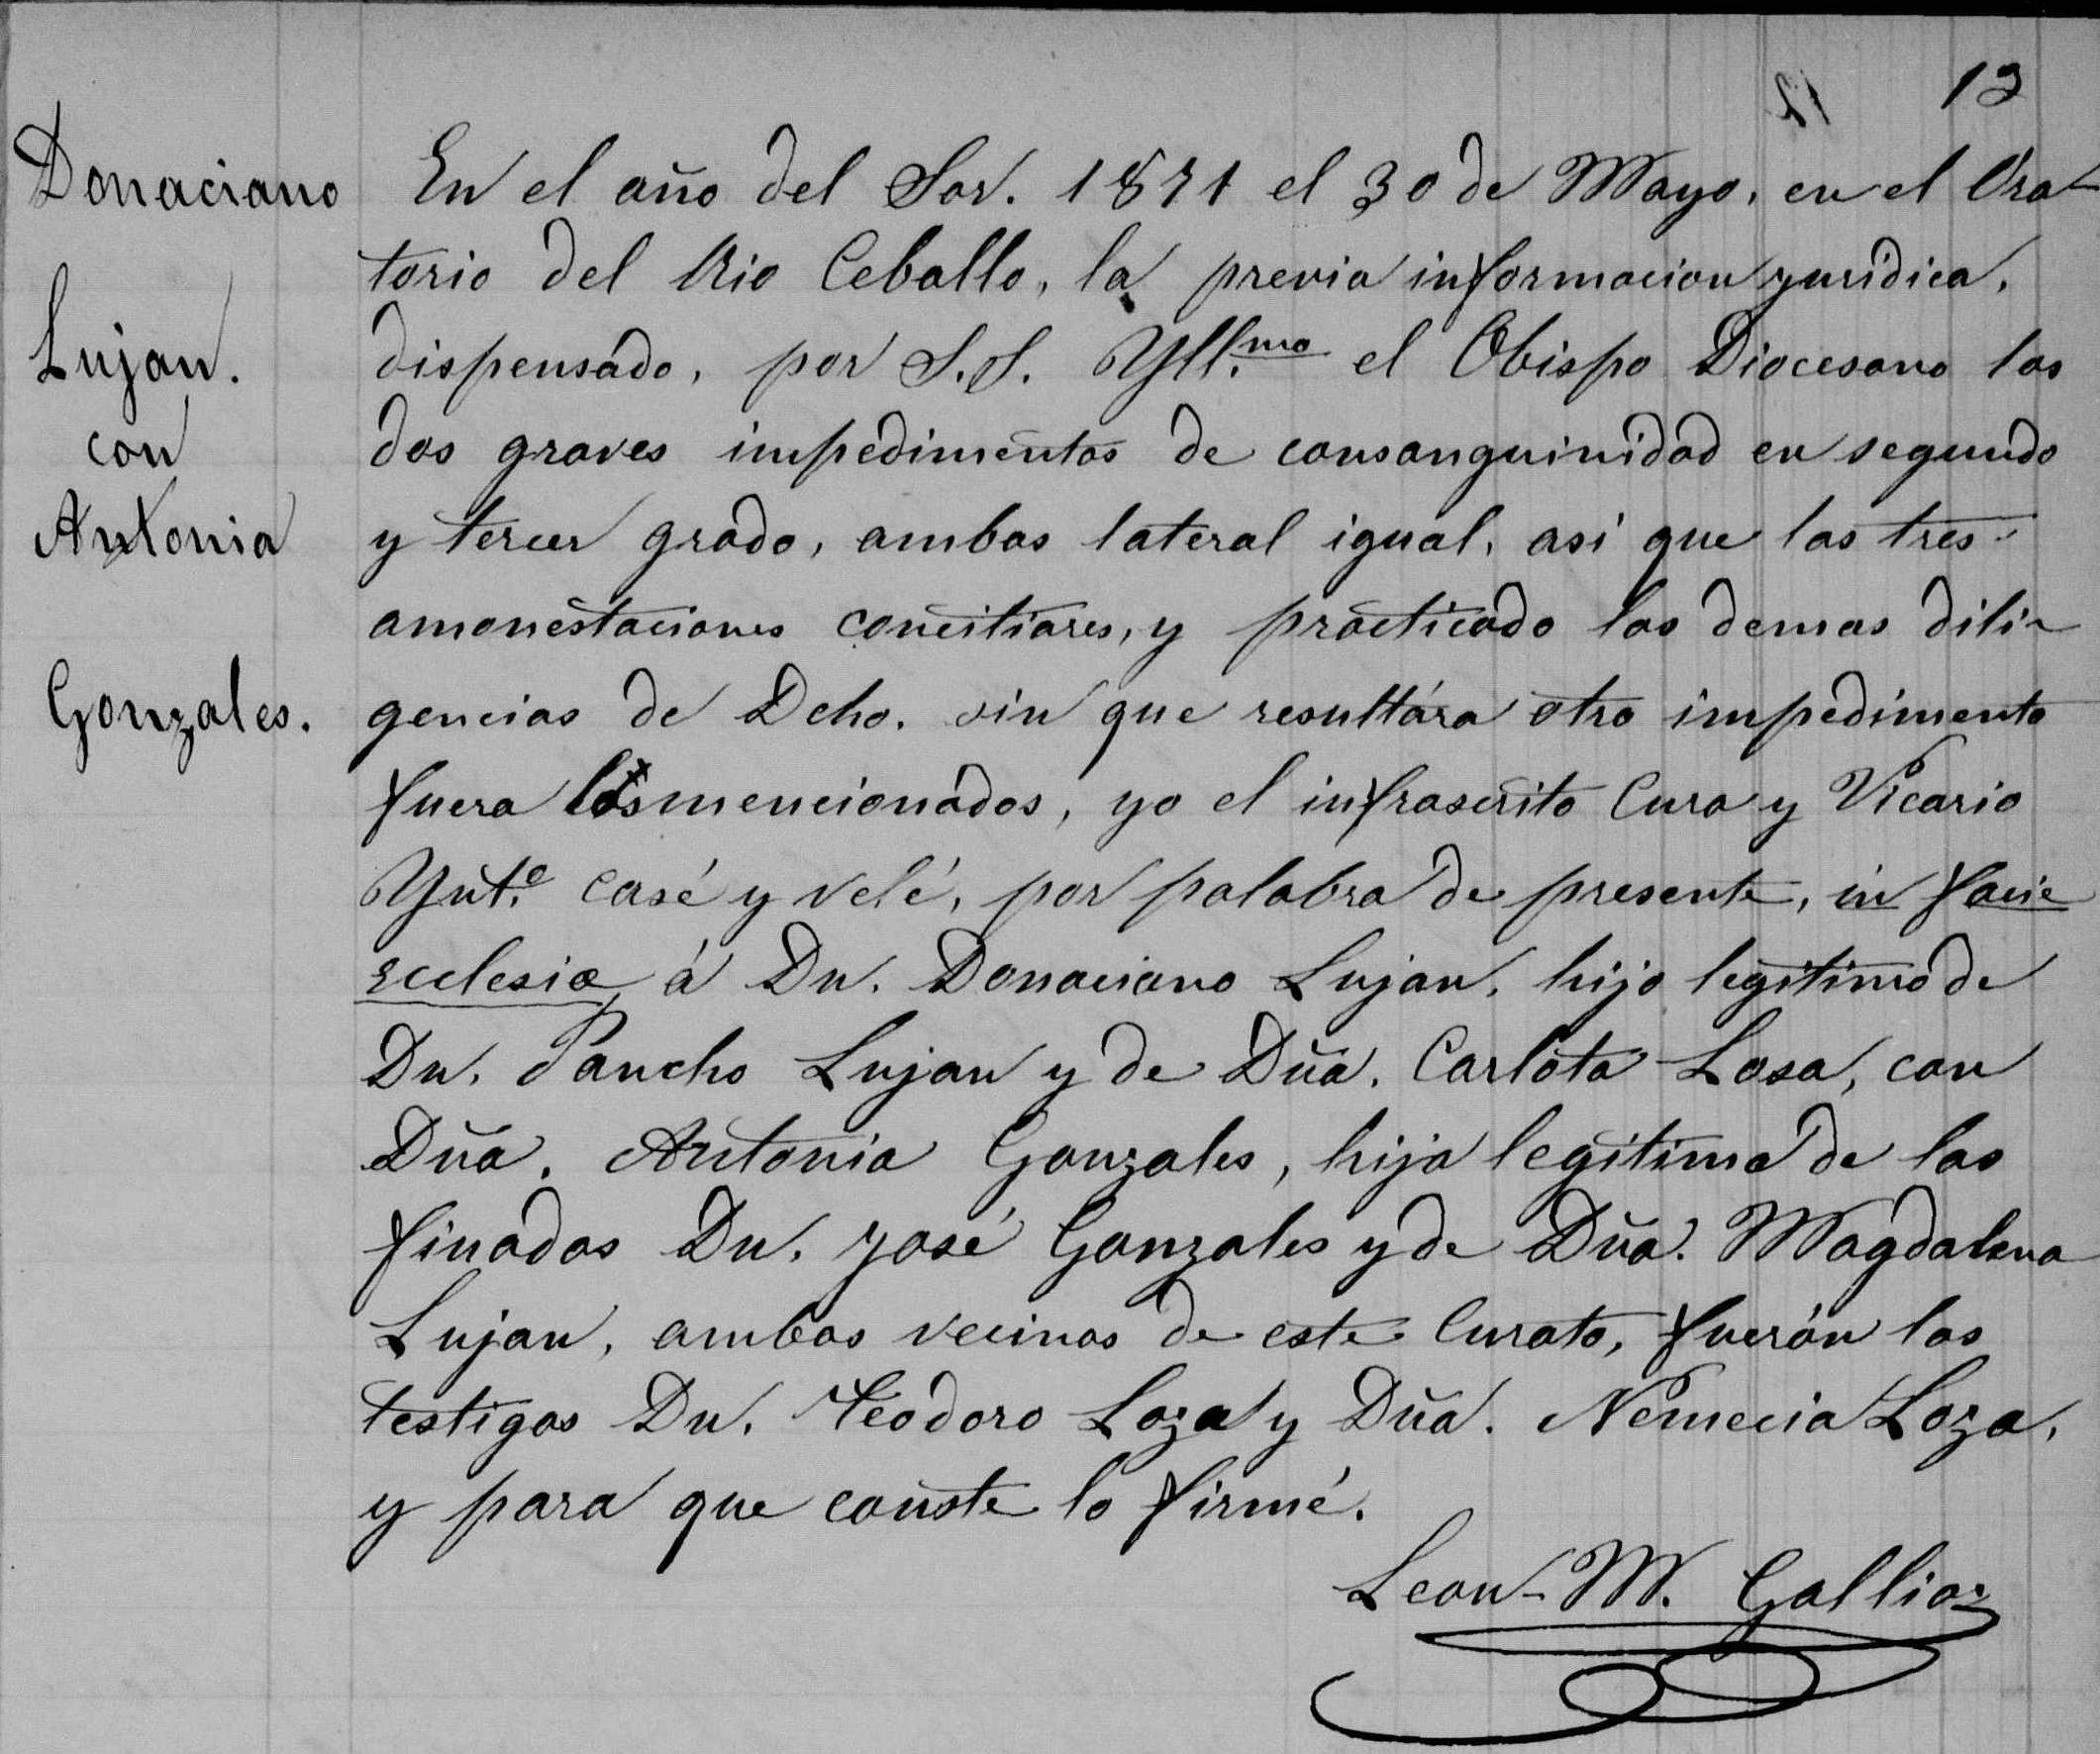 13
Donaciano
Lujan.
con
Antonia
Gonzales.
En el año del Sor. 1871 el 30 de Mayo, en el Ora-
torio del Rio Ceballo, la previa informacion juridica,
dispensado, por S.S. Yll.mo el Obispo Diocesano los
dos graves impedimentos de consanguinidad en segundo
y tercer grado, ambos lateral igual, asi que las tres
amonestaciones conciliares, y practicado las demas dili-
gencias de Dcho. sin que resultára otro impedimento
fuera los mencionados, yo el infrascrito Cura y Vicario
Ynt.o casé y velé, por palabra de presente, in facie
ecclesiæ, á Dn. Donaciano Lujan, hijo legitimo de
Dn. Pancho Lujan y de Dña. Carlota Losa, con
Dña. Antonia Gonzales, hija legitima de los
finados Dn. José Gonzales y de Dña. Magdalena
Lujan, ambos vecinos de este Curato, fuerón los
testigos Dn. Teodoro Loza y Dña. Nemecia Loza,
y para que conste lo firmé.
Leon M. Gallioz